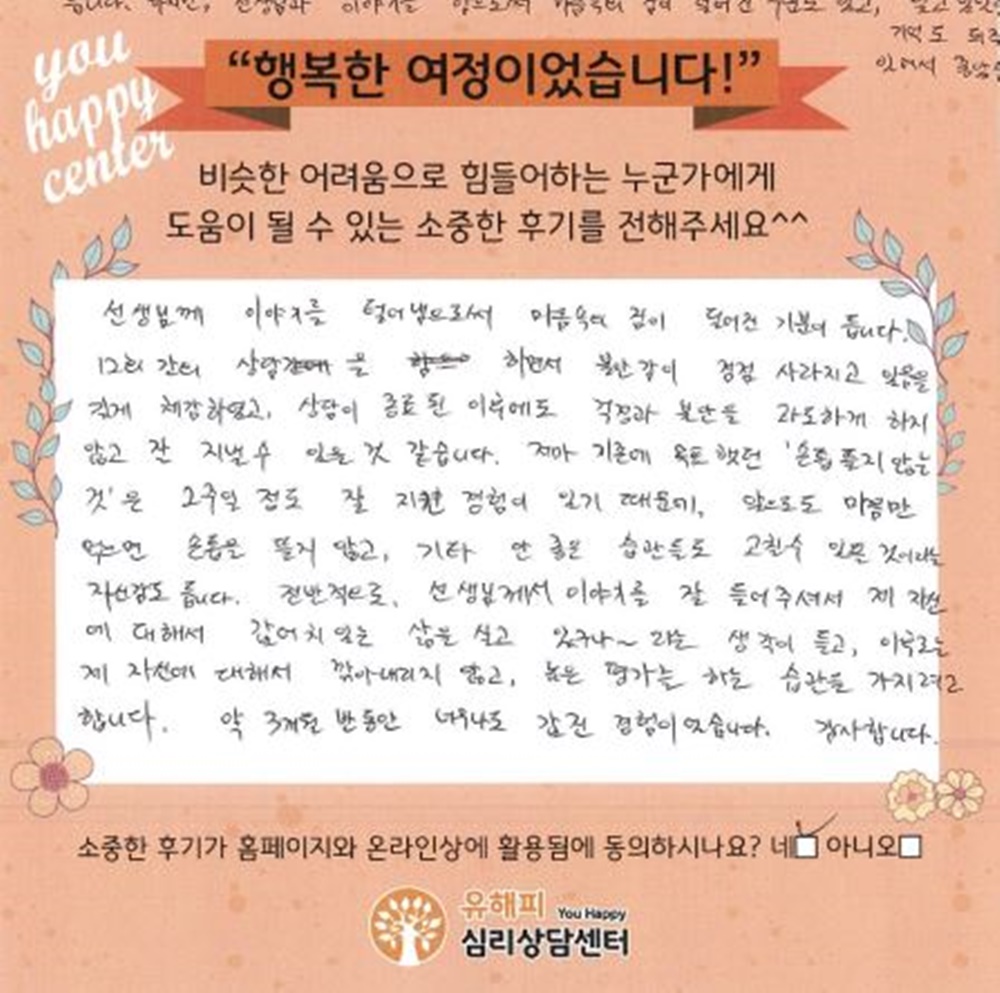 you
happy
center
“행복한 여정이었습니다!”
비슷한 어려움으로 힘들어하는 누군가에게
도움이 될 수 있는 소중한 후기를 전해주세요^^
선생님께 이야기를 털어냄으로써 마음속의 짐이 덜어진 기분이 듭니다.
12회 간의 상담은 하면서 불안감이 점점 사라지고 있음을
쉽게 체감하였고, 상담이 종료된 이후에도 걱정과 불안을 과도하게 하지
않고 잘 지낼 수 있을 것 같습니다. 제가 기존에 목표했던 '손톱 뜯지 않는
것'은 2주일 정도 잘 지킨 경험이 있기 때문에, 앞으로도 마음만
먹으면 손톱을 뜯지 않고, 기타 안 좋은 습관들도 고칠 수 있을 것이라는
자신감도 듭니다. 전반적으로, 선생님께서 이야기를 잘 들어주셔서 제 자신
에 대해서 값어치 있는 삶을 살고 있구나~ 라는 생각이 들고, 이후로는
제 자신에 대해서 깎아내리지 않고, 높은 평가를 하는 습관을 가지려고
합니다. 약 3개월 반 동안 너무나도 값진 경험이었습니다. 감사합니다.
소중한 후기가 홈페이지와 온라인상에 활용됨에 동의하시나요? 네 아니오
유해피 You Happy
심리상담센터